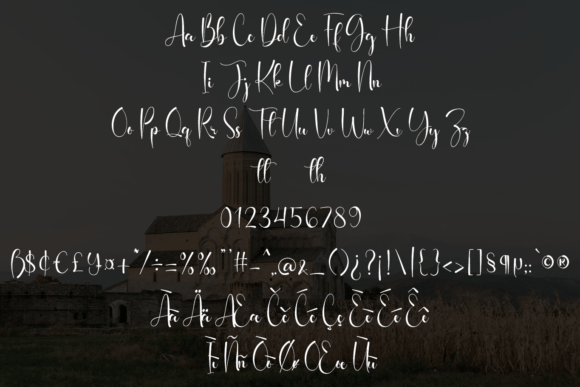 Aa Bb Cc Dd Ee Ff Gg Hh
Ii Jj Kk Ll Mm Nn
Oo Pp Qq Rr Ss Tt Uu Vv Ww Xx Yy Zz
tt th
0123456789
ß$¢€£¥¤+*/÷=%‰"#-^.,@&_()¿?¡!\|{}<>[]§¶µ:;`©®
Àà Ää Ææ Čč Ćć Çç Èè Éé Êê
Ìì Ññ Òò Øø Œœ Ùù